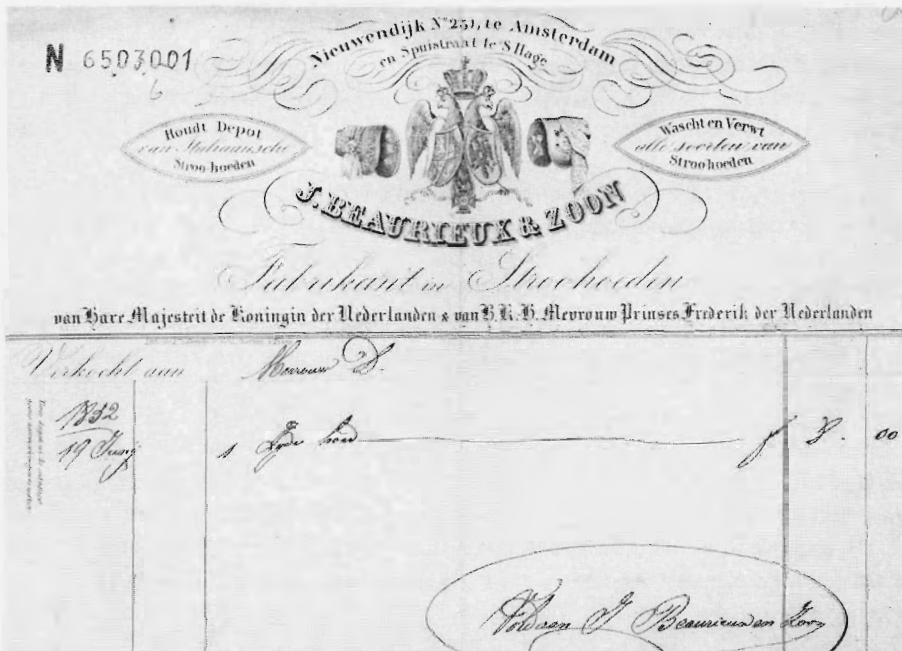 N 6503001
6
Nieuwendijk No 251, te Amsterdam
en Spuistraat te 'S Hage
Houdt Depot
van Italiaansche
Stroo hoeden
Wascht en Verwt
alle soorten van
Stroohoeden
J. BEAURIEUX & ZOON
Fabrikant in Stroohoeden
van Hare Majesteit de Koningin der Nederlanden & van H.K.H. Mevrouw Prinses Frederik der Nederlanden
Verkocht aan Mevrouw D.
1852
19 Junij 1 Zyde hoed f 8. 00
Voldaan J Beaurieux en Zoon